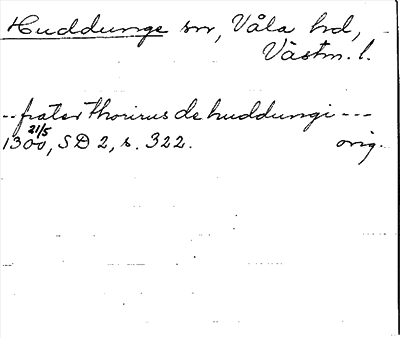 Huddunge sn, Våla hd,
Västm. l.
-- frater Thorirus de huddungi ---
21/5
1300, SD 2, s. 322. orig.